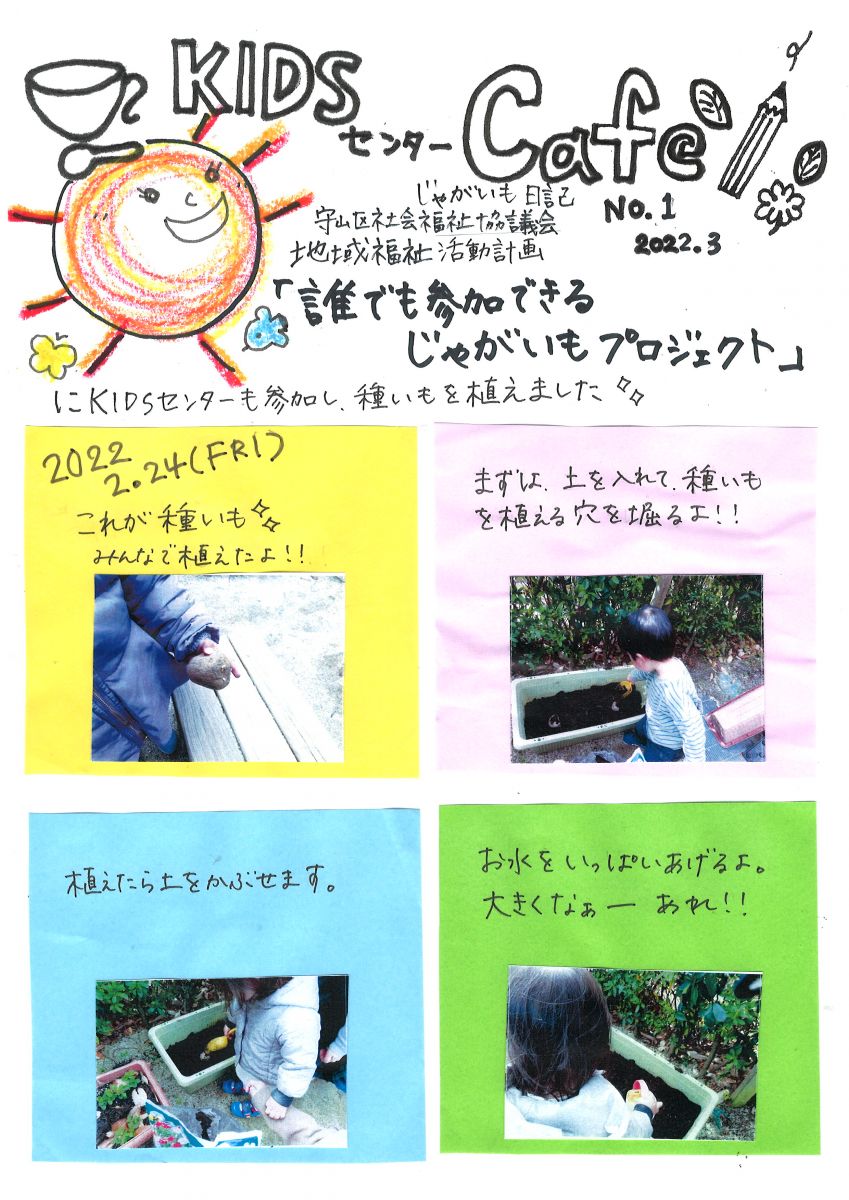 KIDS
センター Cafe
じゃがいも日記
NO.1
守山区社会福祉協議会
2022.3
地域福祉活動計画
「誰でも参加できる
じゃがいもプロジェクト」
にKIDSセンターも参加し、種いもを植えました
2022
2.24(FRI)
これが種いも
みんなで植えたよ!!
まずは、土を入れて、種いも
を植える穴を堀るよ!!
植えたら土をかぶせます。
お水をいっぱいあげるよ。
大きくなぁーあれ!!